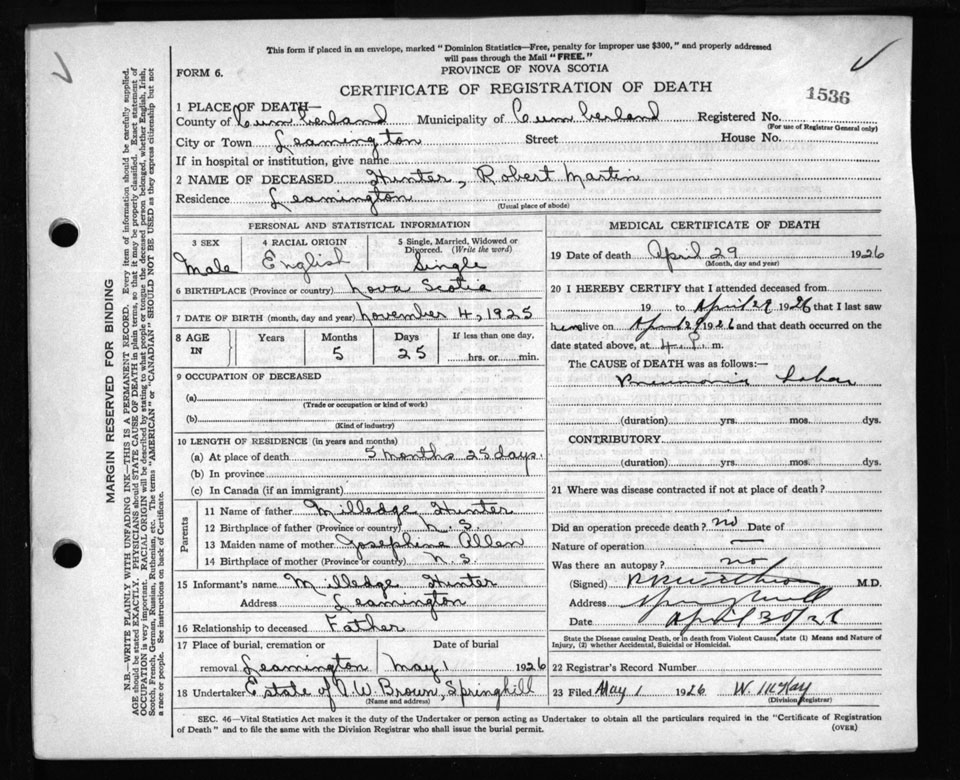 This form if placed in an envelope, marked "Dominion Statistics—Free, penalty for improper use $300," and properly addressed
will pass through the Mail "FREE."
FORM 6.
PROVINCE OF NOVA SCOTIA
CERTIFICATE OF REGISTRATION OF DEATH
1536
1 PLACE OF DEATH—
County of Cumberland Municipality of Cumberland Registered No.
(For use of Registrar General only)
City or Town Leamington Street House No.
If in hospital or institution, give name
2 NAME OF DECEASED Hunter, Robert Martin
Residence Leamington
(Usual place of abode)
PERSONAL AND STATISTICAL INFORMATION
3 SEX 4 RACIAL ORIGIN 5 Single, Married, Widowed or
Divorced. (Write the word)
Male English Single
6 BIRTHPLACE (Province or country) Nova Scotia
7 DATE OF BIRTH (month, day and year) November 4, 1925
8 AGE IN Years Months Days If less than one day,
5 25 hrs. or min.
9 OCCUPATION OF DECEASED
(a)
(Trade or occupation or kind of work)
(b)
(Kind of industry)
10 LENGTH OF RESIDENCE (in years and months)
(a) At place of death 5 months 25 days.
(b) In province
(c) In Canada (if an immigrant)
Parents
11 Name of father Milledge Hunter
12 Birthplace of father (Province or country) N. S.
13 Maiden name of mother Josephine Allen
14 Birthplace of mother (Province or country) N. S.
15 Informant's name Milledge Hunter
Address Leamington
16 Relationship to deceased Father
17 Place of burial, cremation or Date of burial
removal Leamington May 1 1926
18 Undertaker Estate of J. W. Brown, Springhill
(Name and address)
MEDICAL CERTIFICATE OF DEATH
19 Date of death April 29 1926
(Month, day and year)
20 I HEREBY CERTIFY that I attended deceased from
19 to April 29 1926 that I last saw
him alive on April 29 1926 and that death occurred on the
date stated above, at 4 P. m.
The CAUSE of DEATH was as follows:—
Pneumonia Lobar
(duration) yrs. mos. dys.
CONTRIBUTORY
(duration) yrs. mos. dys.
21 Where was disease contracted if not at place of death?
Did an operation precede death? no Date of
Nature of operation —
Was there an autopsy? no
(Signed) M.D.
Address Springhill
Date April 30/26
State the Disease causing Death, or in death from Violent Causes, state (1) Means and Nature of
Injury, (2) whether Accidental, Suicidal or Homicidal.
22 Registrar's Record Number
23 Filed May 1 1926 W. McKay
(Division Registrar)
SEC. 46—Vital Statistics Act makes it the duty of the Undertaker or person acting as Undertaker to obtain all the particulars required in the "Certificate of Registration
of Death" and to file the same with the Division Registrar who shall issue the burial permit.
(OVER)
MARGIN RESERVED FOR BINDING
N.B.—WRITE PLAINLY, WITH UNFADING INK—THIS IS A PERMANENT RECORD. Every item of information should be carefully supplied.
AGE should be stated EXACTLY. PHYSICIANS should STATE CAUSE OF DEATH in plain terms, so that it may be properly classified. Exact statement of
OCCUPATION is very important. RACIAL ORIGIN will be described by stating to what people or tongue the deceased person belonged, whether English, Irish,
Scotch, French, German, Russian, Ruthenian, etc. The terms "AMERICAN" or "CANADIAN" SHOULD NOT BE USED as they express citizenship but not
a race or people. See instructions on back of Certificate.